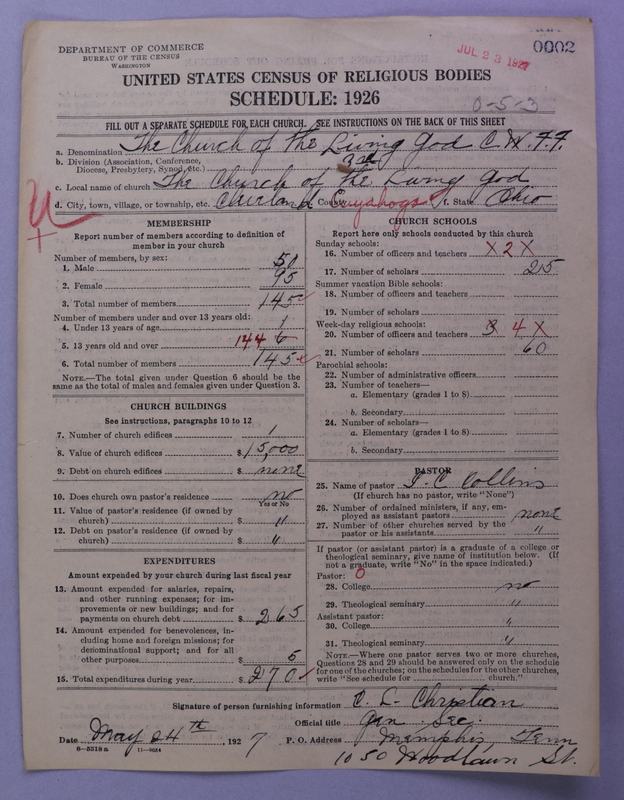 0002
JUL 23 1927
DEPARTMENT OF COMMERCE
BUREAU OF THE CENSUS
WASHINGTON
UNITED STATES CENSUS OF RELIGIOUS BODIES
SCHEDULE: 1926
0-5-3
FILL OUT A SEPARATE SCHEDULE FOR EACH CHURCH. SEE INSTRUCTIONS ON THE BACK OF THIS SHEET
a. Denomination The Church of the Living God C.W.F.F.
b. Division (Association, Conference, Diocese, Presbytery, Synod, etc.)
c. Local name of church The Church of the Living God
d. City, town, village, or township, etc. Cleveland County Cuyahoga f. State Ohio
MEMBERSHIP
Report number of members according to definition of member in your church
Number of members, by sex:
1. Male 50
2. Female 95
3. Total number of members 145
Number of members under and over 13 years old:
4. Under 13 years of age 1
5. 13 years old and over 144 6
6. Total number of members 145
NOTE.—The total given under Question 6 should be the same as the total of males and females given under Question 3.
CHURCH BUILDINGS
See instructions, paragraphs 10 to 12
7. Number of church edifices 1
8. Value of church edifices $ 15,000
9. Debt on church edifices $ none
10. Does church own pastor's residence no
Yes or No
11. Value of pastor's residence (if owned by church) $ "
12. Debt on pastor's residence (if owned by church) $ "
EXPENDITURES
Amount expended by your church during last fiscal year
13. Amount expended for salaries, repairs, and other running expenses; for improvements or new buildings; and for payments on church debt $ 265
14. Amount expended for benevolences, including home and foreign missions; for denominational support; and for all other purposes $ 5
15. Total expenditures during year $ 270
CHURCH SCHOOLS
Report here only schools conducted by this church
Sunday schools:
16. Number of officers and teachers X 2 X
17. Number of scholars 25
Summer vacation Bible schools:
18. Number of officers and teachers
19. Number of scholars
Week-day religious schools:
20. Number of officers and teachers 3 4 X
21. Number of scholars 60
Parochial schools:
22. Number of administrative officers
23. Number of teachers—
a. Elementary (grades 1 to 8)
b. Secondary
24. Number of scholars—
a. Elementary (grades 1 to 8)
b. Secondary
PASTOR
25. Name of pastor Collins
(If church has no pastor, write "None")
26. Number of ordained ministers, if any, employed as assistant pastors none
27. Number of other churches served by the pastor or his assistants "
If pastor (or assistant pastor) is a graduate of a college or theological seminary, give name of institution below. (If not a graduate, write "No" in the space indicated.)
Pastor: 0
28. College no
29. Theological seminary "
Assistant pastor:
30. College "
31. Theological seminary "
NOTE.—Where one pastor serves two or more churches, Questions 28 and 29 should be answered only on the schedule for one of the churches; on the schedules for the other churches, write "See schedule for church."
Signature of person furnishing information C. L. Christian
Official title Gen. Sec.
Date May 24th, 1927 P. O. Address Memphis, Tenn
8-5518a 11-9024 1050 Woodlawn St.